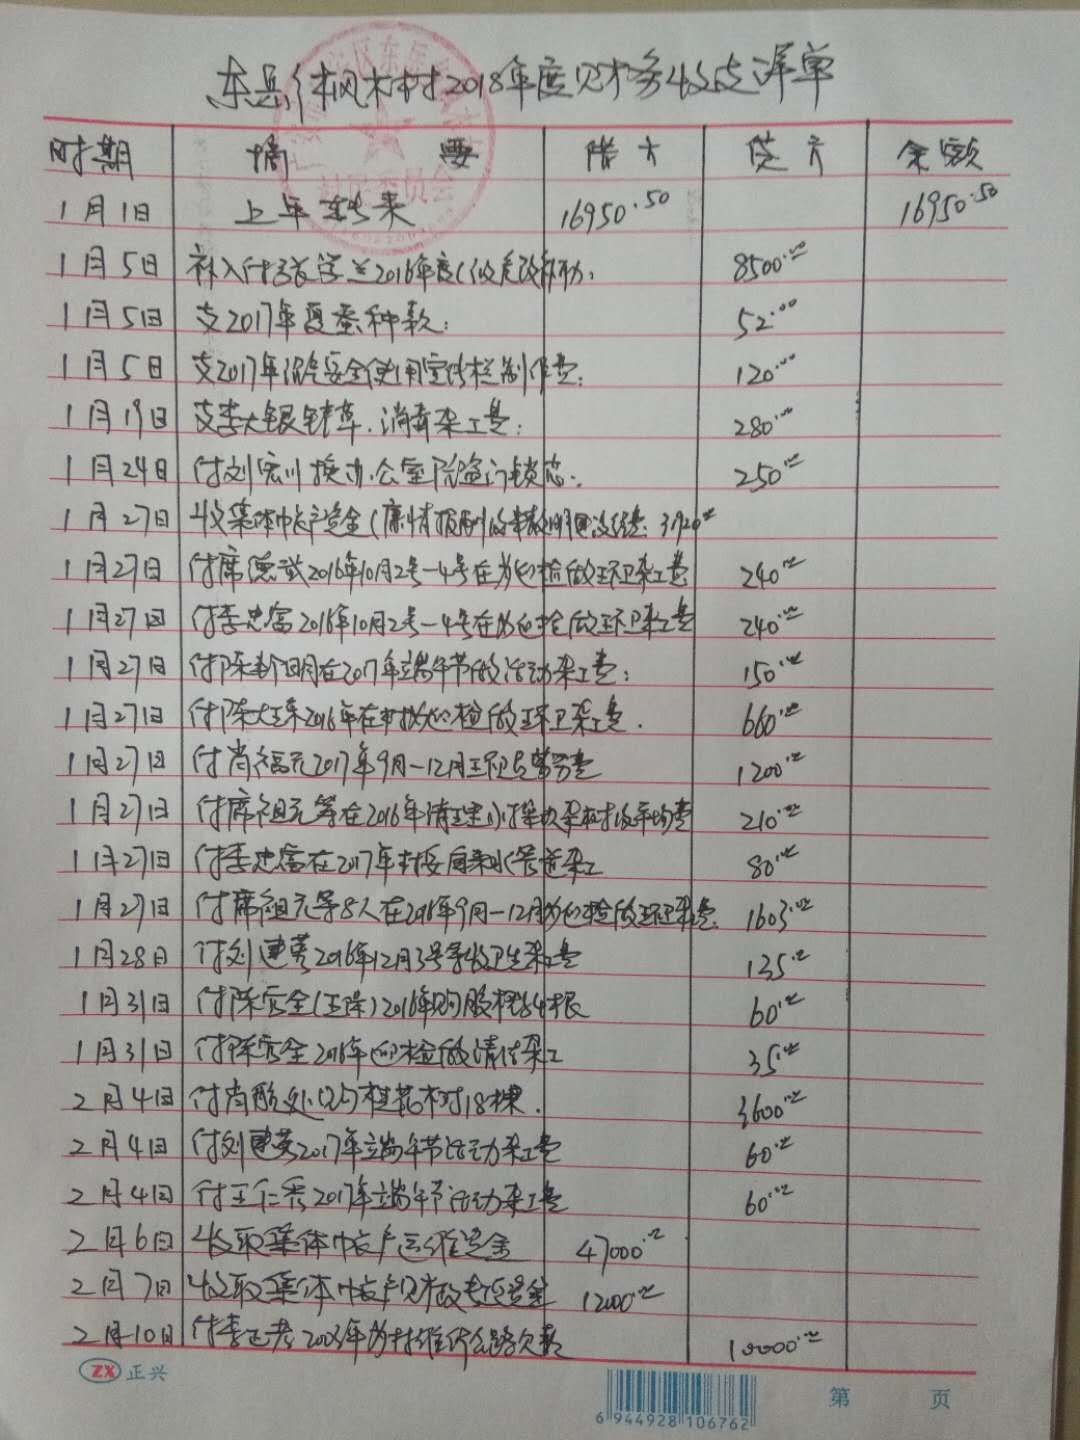 东岳乡枫木村2018年度财务收支详单
时期 摘要 借方 贷方 余额
1月1日 上年转来 16950.50 16950.50
1月5日 2016年度 8500.00
1月5日 支2017年夏蚕种款: 52.00
1月5日 支2017年沼气安全使用宣传栏制作费: 120.00
1月19日 支李大银锄草.消毒杂工费: 280.00
1月24日 付刘宏川换办公室 门锁芯. 250.00
1月27日 收集体帐户资金( 3920.00
1月27日 付席德武2016年10月2号—4号在为迎检做环卫杂工费 240.00
1月27日 付李忠富2016年10月2号—4号在为迎检做环卫杂工费 240.00
1月27日 在2017年端午节做活动杂工费: 150.00
1月27日 付陈大玉2016年在村为迎检做环卫杂工费. 660.00
1月27日 付肖福元2017年9月—12月环卫员劳务费 1200.00
1月27日 付席祖元等在2016年清理 210.00
1月27日 付李忠富在2017年 自来水管道杂工 80.00
1月27日 付席祖元等8人在2016年9月—12月为迎检做环卫杂工费. 1603.00
1月28日 付刘建英2016年12月3号等做卫生杂工费 135.00
1月31日 付陈官全 2016年 4根 60.00
1月31日 付陈官全2016年迎检做清洁杂工 35.00
2月4日 付肖 处购桂花树18棵. 3600.00
2月4日 付刘建英2017年端午节活动杂工费 60.00
2月4日 付王仁秀2017年端午节活动杂工费 60.00
2月6日 收取集体帐户运维资金 47000.00
2月7日 收取集体帐户财政专项资金 12000.00
2月10日 付李正 2003年为村维修公路欠款 10000.00
ZX 正兴
6 944928 106762
第 页